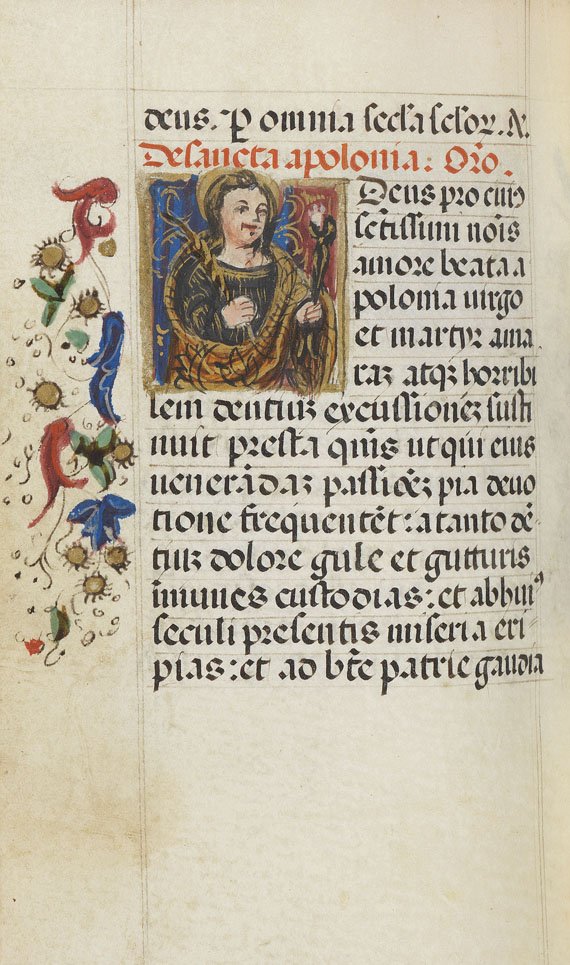 deus. P omnia secła secłoꝝ. A.
De sancta apolonia. Oro.
Deus pro cuiꝰ
sctissimi nois
amore beata a
polonia uirgo
et martyr ama
raꝫ atqꝫ horribi
lem dentiuꝫ excussioneꝫ susti
nuit presta quis ut qui eius
ueneradaꝫ passioeꝫ pia deuo
tione frequentet: a tanto de-
tiuꝫ dolore gule et gutturis
immunes custodias: et ab huiꝰ
seculi presentis miseria eri-
pias: et ad bte patrie gaudia